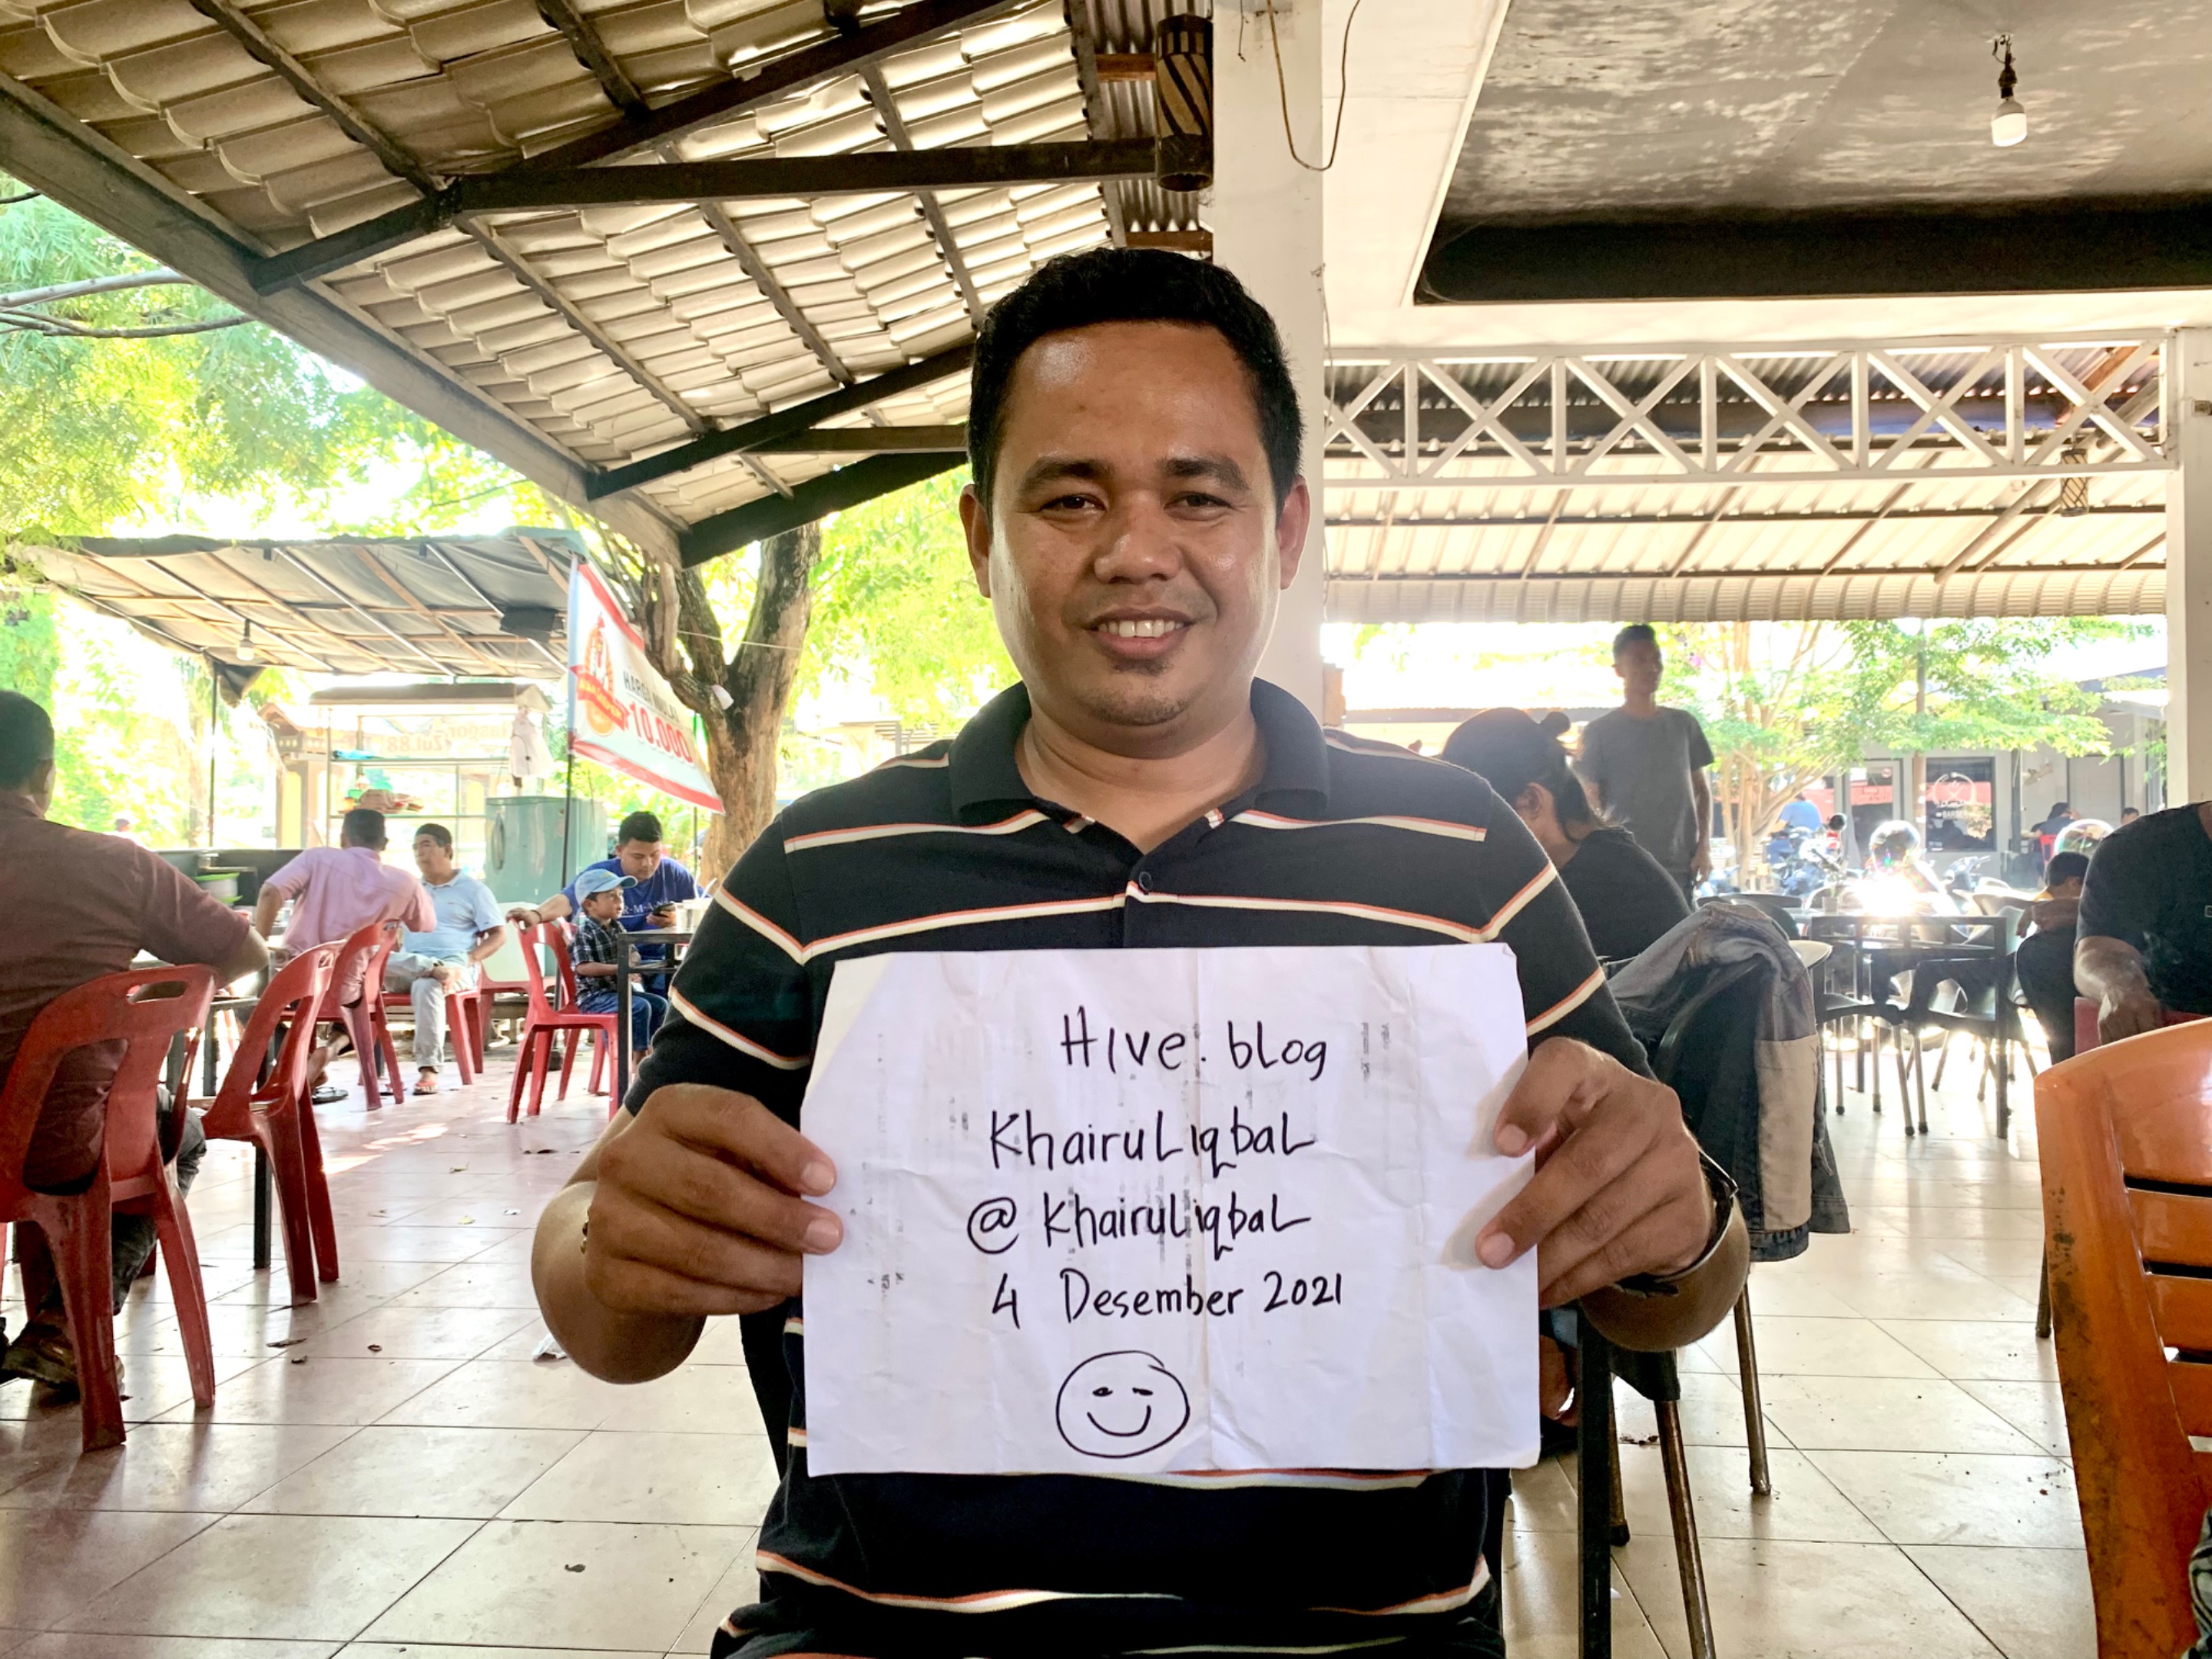 Hive.blog
Khairuliqbal
@khairuliqbal
4 Desember 2021
10.000
Zul 88